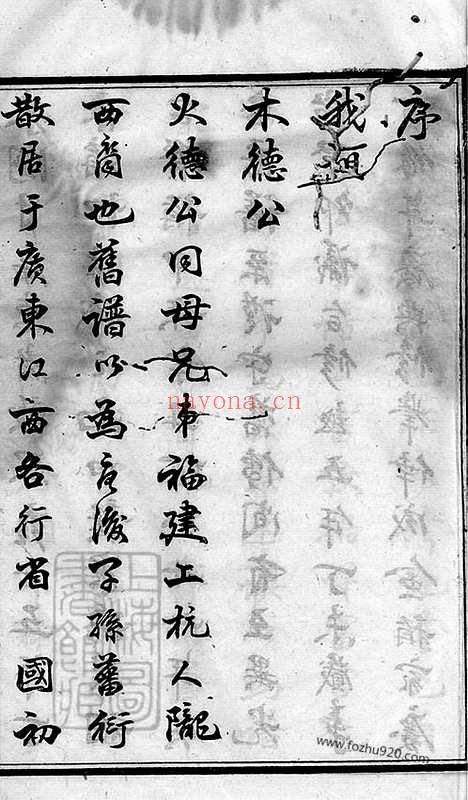 序
我
木德公
火德公同母兄弟福建上杭人隴
西裔也舊譜以為言後子孫蕃衍
散居于廣東江西各行省 國初
上海圖書館藏
nayona.cn
www.fozhu920.com